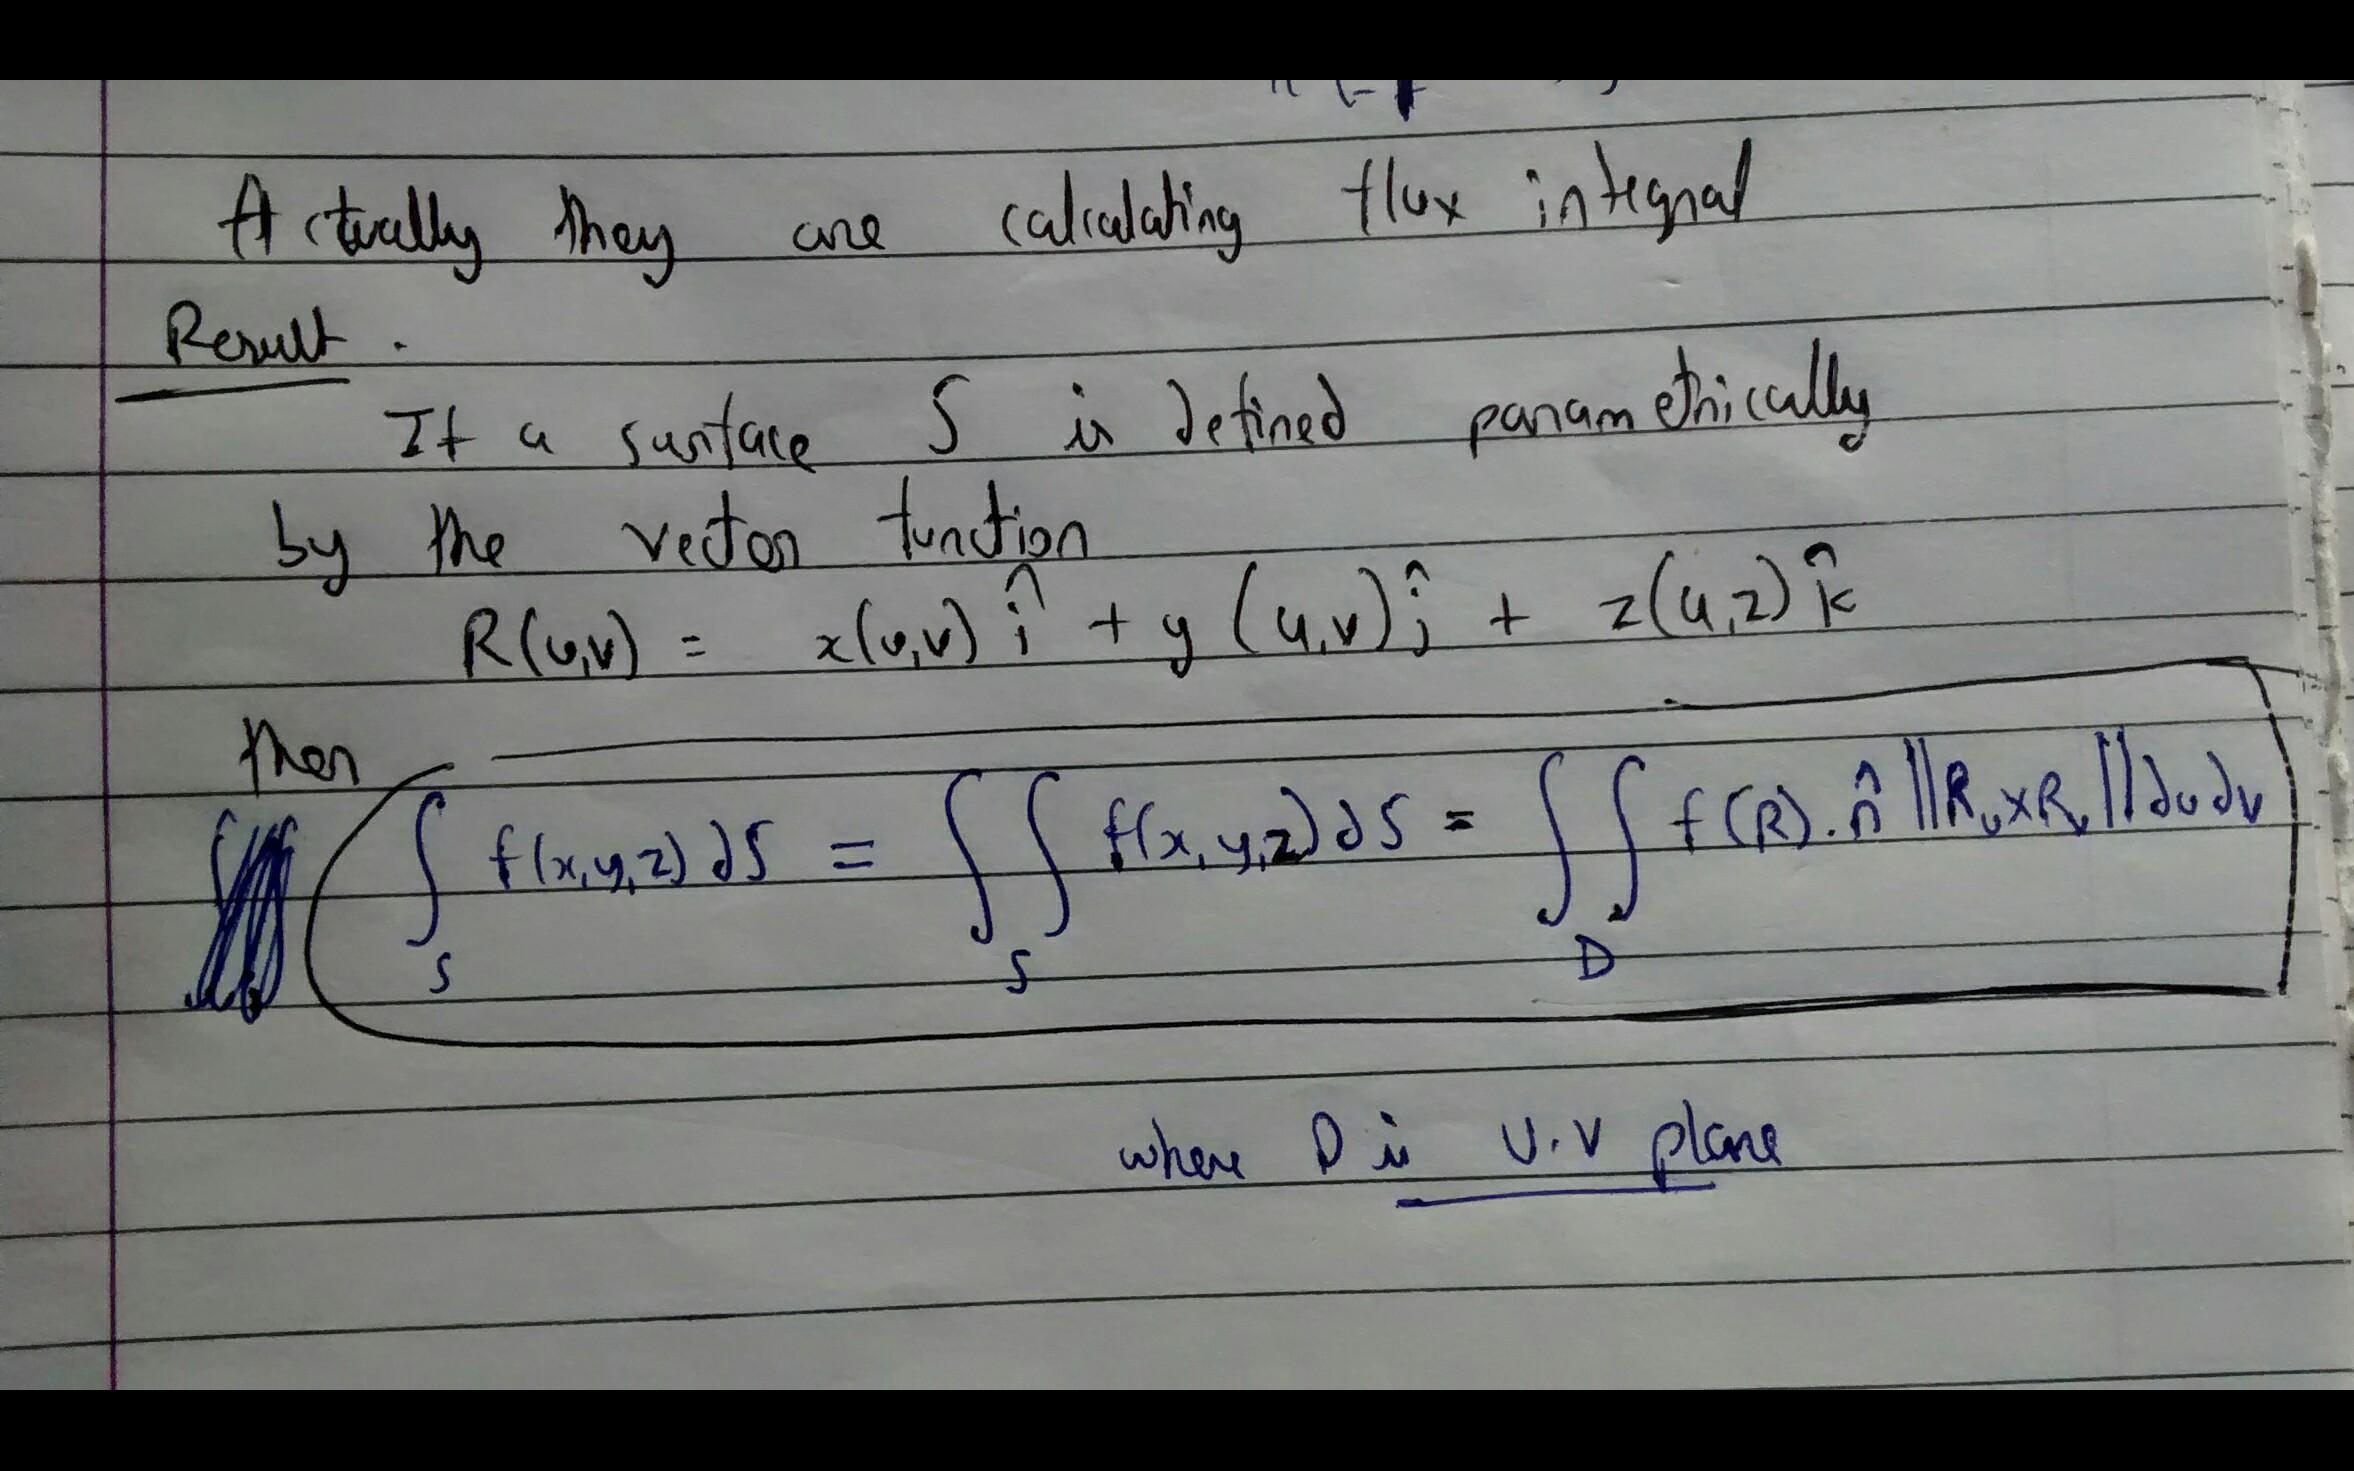 Actually they are calculating flux integral
Result.
If a surface S is defined parametrically
by the vector function
R(u,v) = x(u,v) î + y (u,v) ĵ + z(u,z) k̂
then
∫_S f(x,y,z) dS = ∫∫_S f(x,y,z) dS = ∫∫_D f(R). n̂ ||R_u×R_v|| du dv
where D is U.V plane